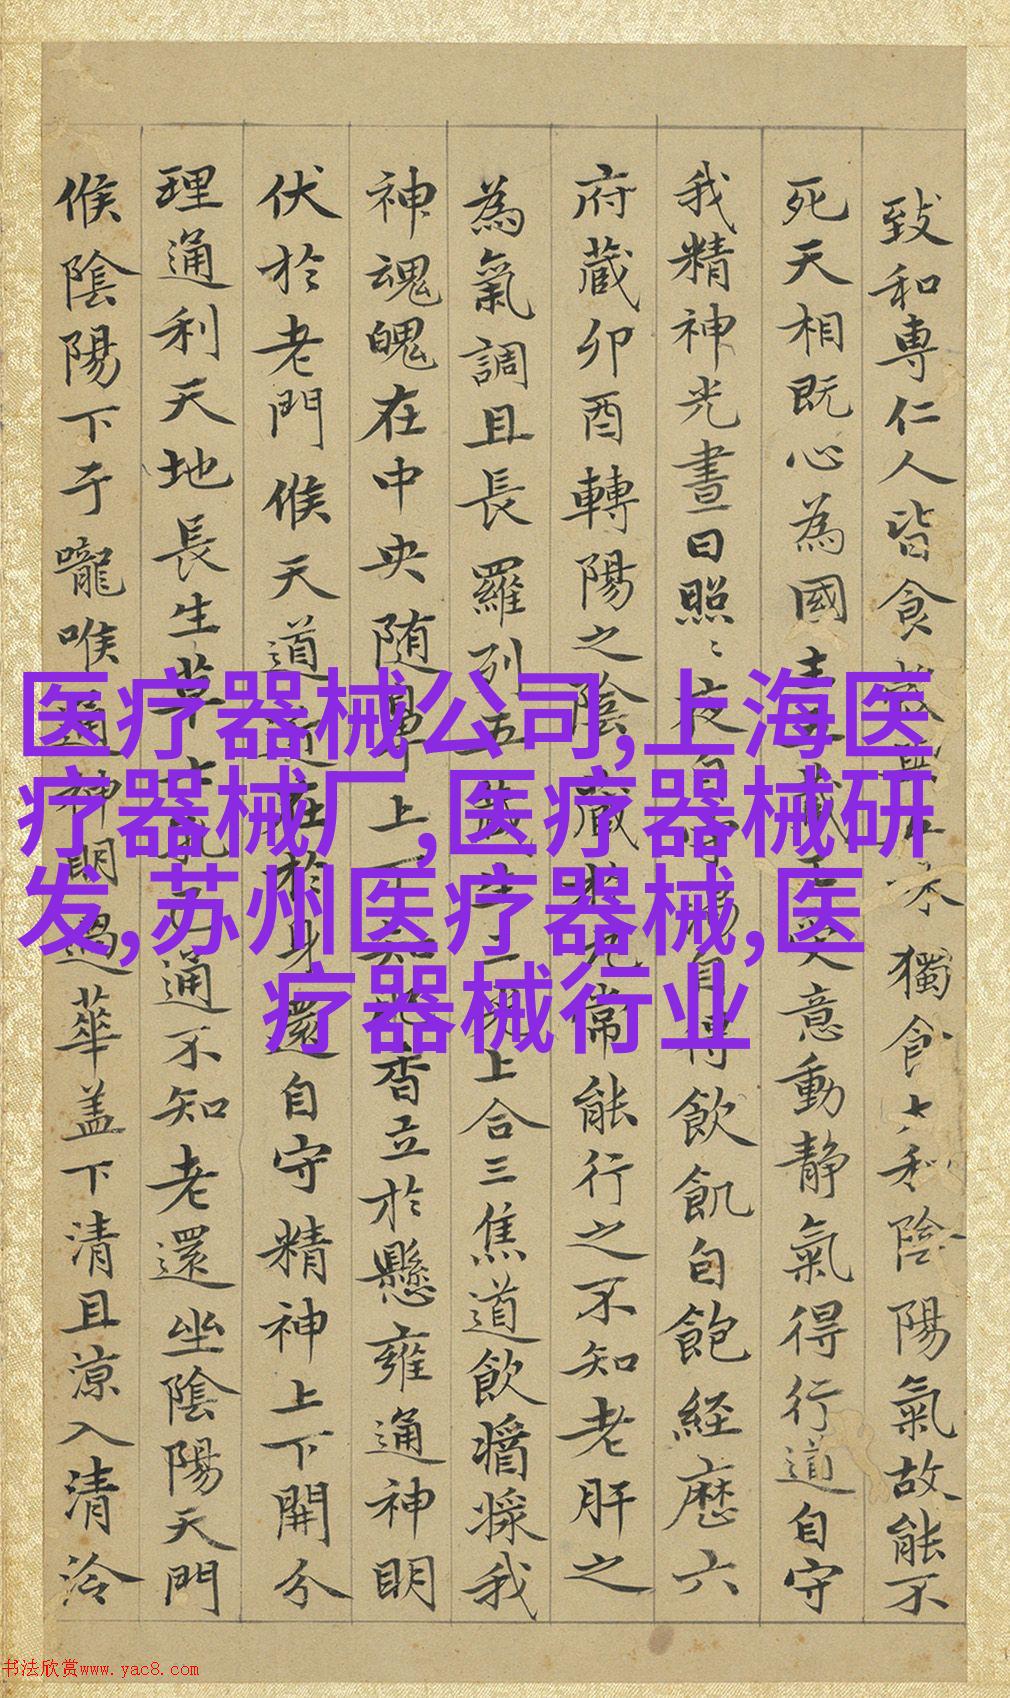 致和専仁人皆食 獨食太和陰陽氣故能不
死天相既心為國 意動静氣得行道自守
我精神光晝日照〻夜自 自得飲飢自飽経歴六
府蔵卯酉轉陽之陰 常能行之不知老肝之
為氣調且長羅列五 上合三焦道飲醬漿我
神魂魄在中央随鼻上 立於懸雍通神明
伏於老門候天道 在於身還自守精神上下開分
理通利天地長生草 通不知老還坐陰陽天門
候陰陽下于嚨喉通神明過華盖下清且涼入清泠
医疗器械公司,上海医
疗器械厂,医疗器械研
发,苏州医疗器械,医
疗器械行业
书法欣赏www.yac8.com